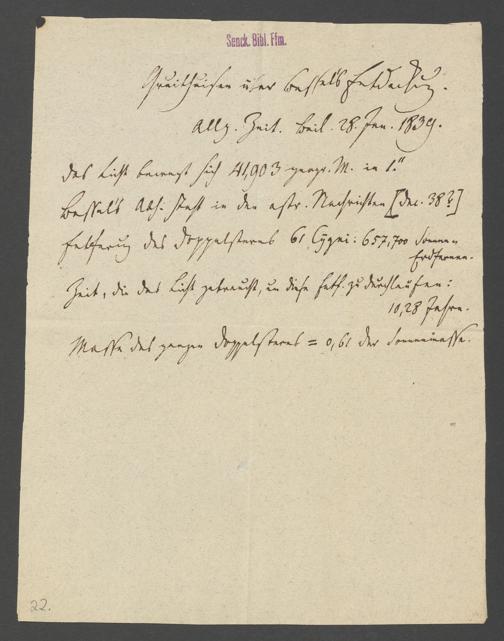 Senck. Bibl. Ffm.
Gruithuisen über Bessel's Entdeckung.
Allg. Zeit. Beil. 28. Jan. 1839.
Das Licht bewegt sich 41,903 geogr. M. in 1."
Bessel's Abh. steht in den astr. Nachrichten [Dec. 38?]
Entfernung des Doppelsterns 61 Cygni: 657,700 Sonnen
Erdfernen.
Zeit, die das Licht gebraucht, um diese Entf. zu durchlaufen:
10,28 Jahre.
Masse des ganzen Doppelsterns = 0,61 der Sonnenmasse.
22.